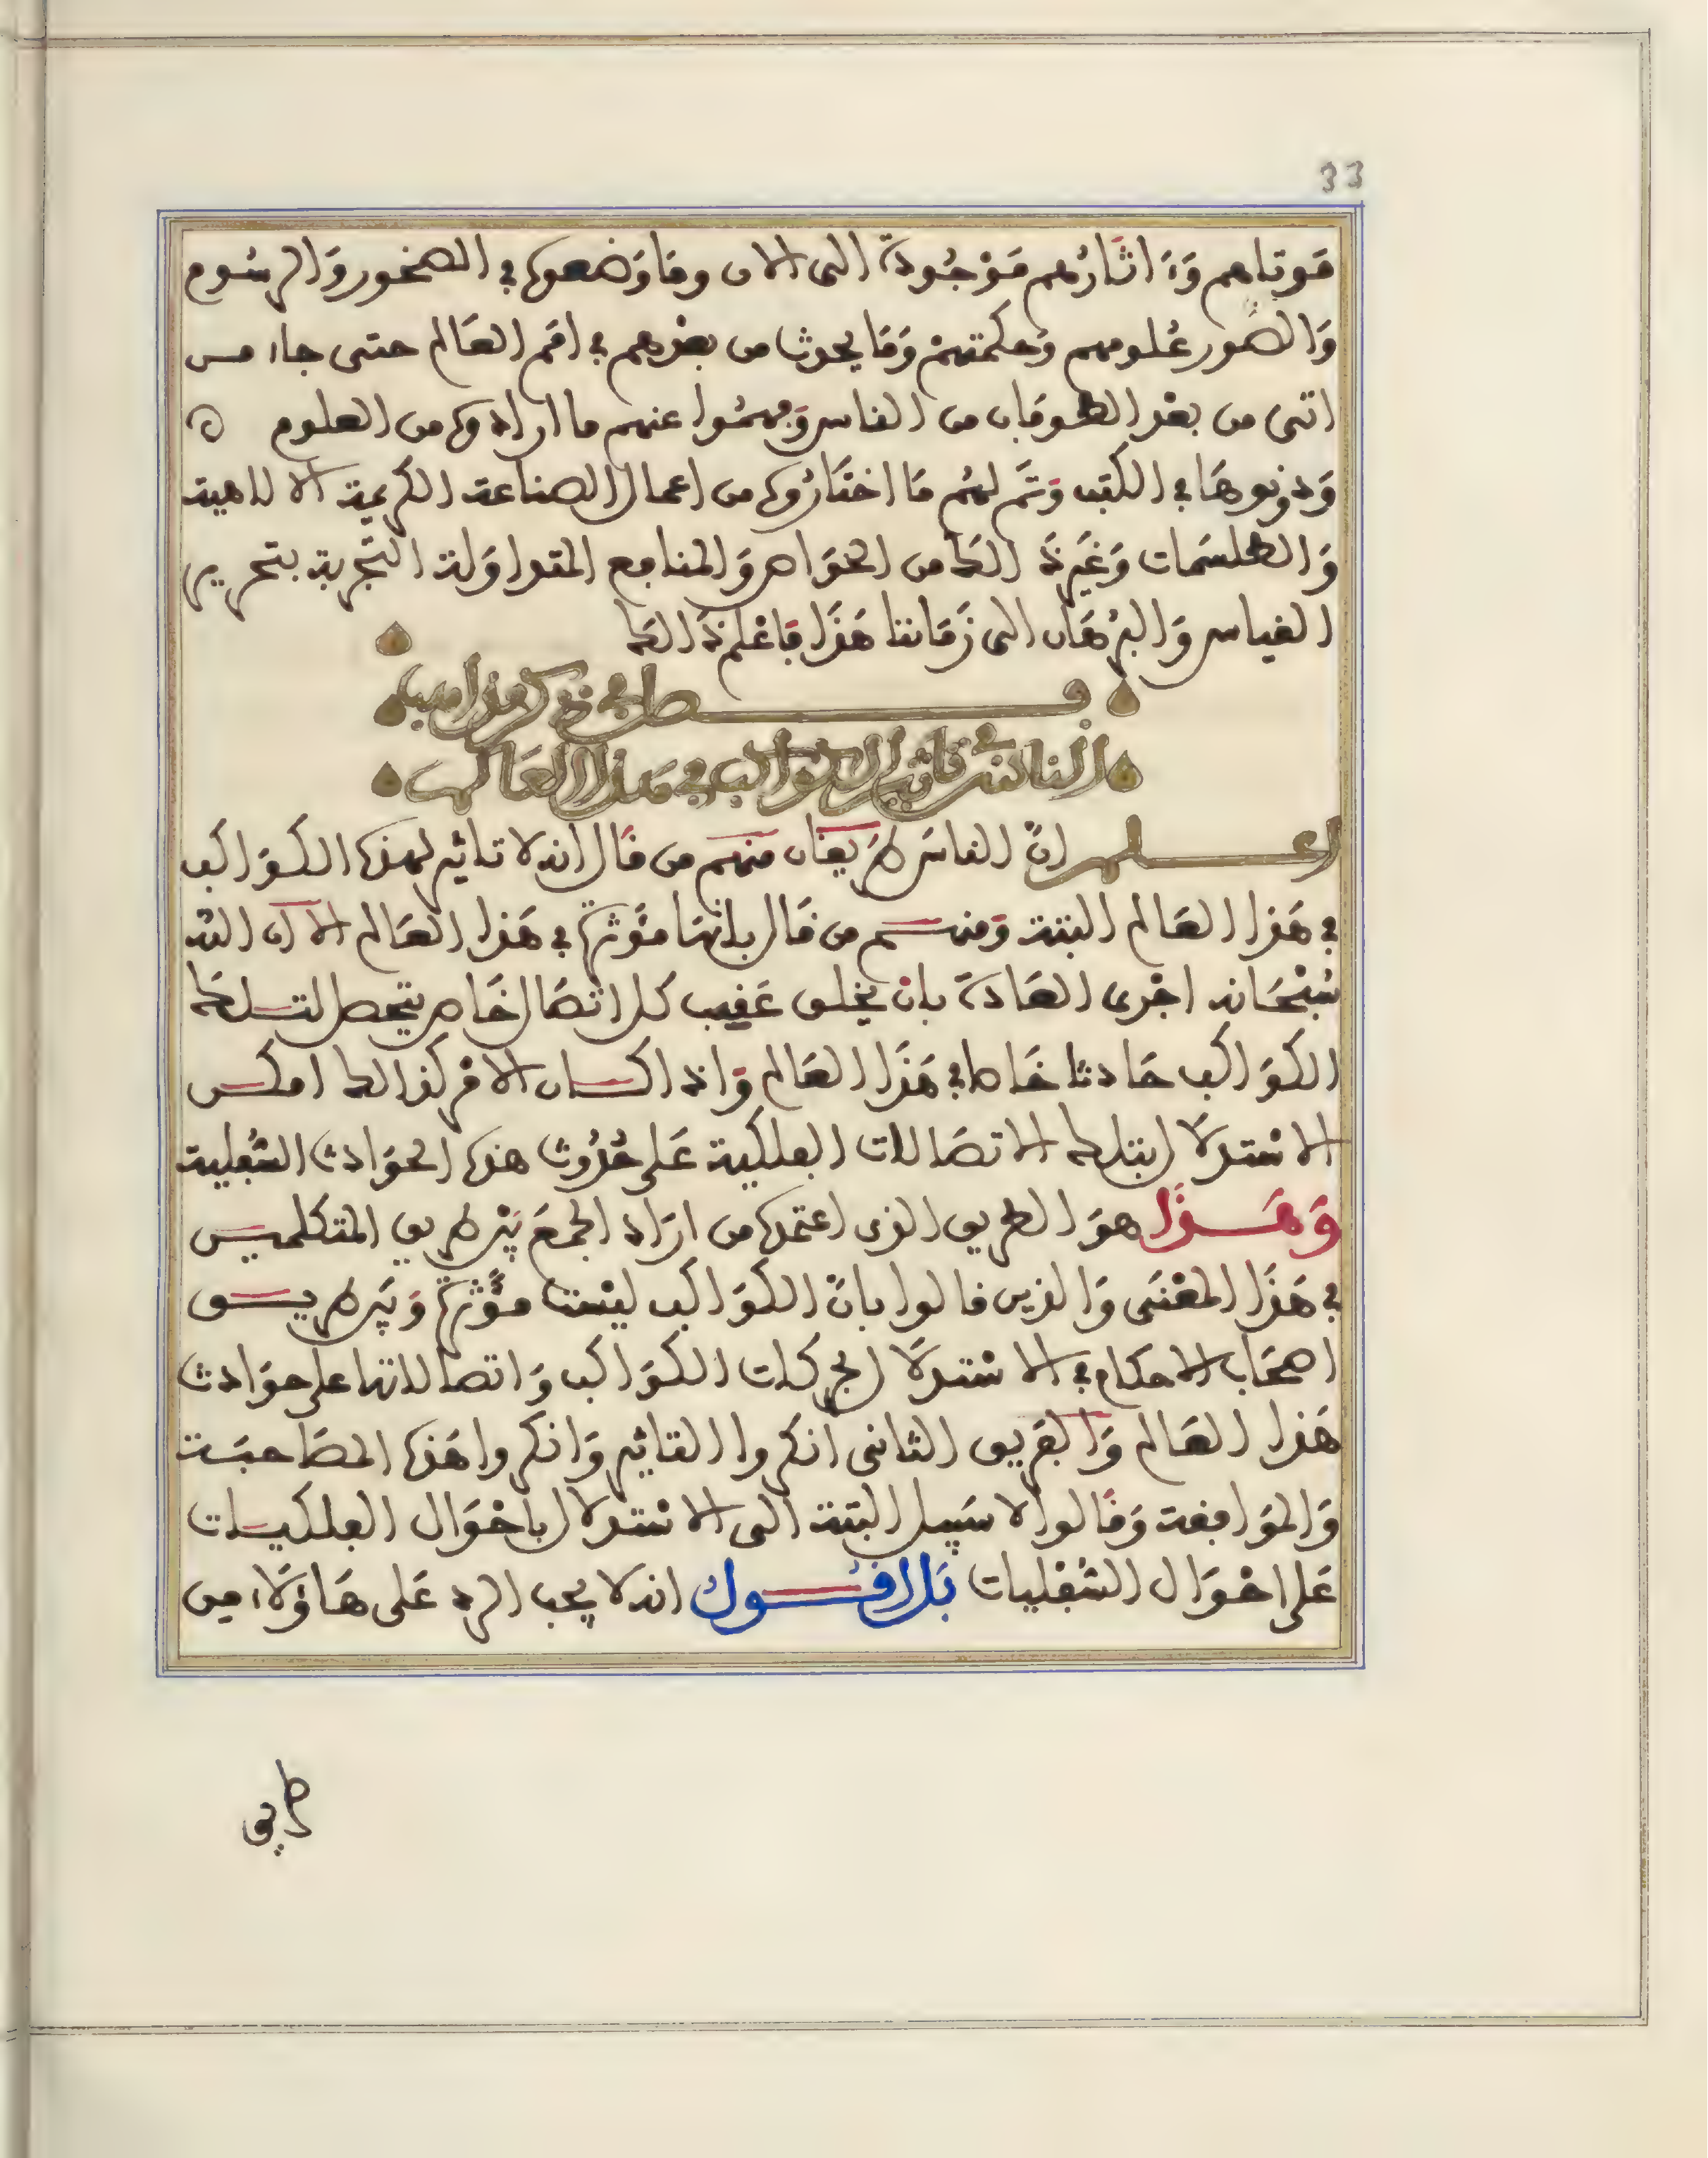 33
مَوتاهم وَءَاثَارُهم مَوْجُودَة الى الان وما وَضَعوه في الصخور وَالرسُوم
وَالصُور عُلومهم وَحكمتهمْ وَمَا يحدث من بعْدهم في امَم العَالم حتى جاء مـن
اتى من بعْد الطوفان من الناس وَفهمُوا عنهم ما ارادوه من العلوم ه
وَدونوهَا في الكتب وَتَم لهُم مَا اختَارُوه من اعمال الصناعة الكريمة الالاهية
وَالطلسَمات وَغَيرَ ذَالكَ من الخوَاص وَالمنافع المتداوَلة التَّجربة بتحرير
القياس وَالبرُهَان الى زَمَاننا هَذَا فَاعْلم ذَالكَ
فـــصل في ذكر مذاهب
الناس في تاثير الكواكب في هَذا العَالم
اعـــلم انَّ الناسَ فَريقَان منهم من قَال انه لا تاثير لهذه الكوَاكب
في هَذا العَالم البتة وَمنهـم من قَال بانهَا مؤَثرة في هَذا العَالم الا ان الله
سُبْحَانه اجْرى العَادَة بانْ يخلق عَقيب كل اتصَال خَاص يحصل لتـلكَ
الكوَاكب حَادثا خَاصا في هَذَا العَالم وَاذا كـان الامْر كذالك امكـن
الاسْتدلاَل بتلك الاتصَالات الفلكية عَلى حُدُوث هذه الحوَادث السُفلية
وَهَـــذَا هوَ الطريق الذى اعتمده من ارَاد الجمعَ بَيْن طريق المتكلميـن
في هَذَا المعْنَى وَالذين قالوا بانَّ الكوَاكب ليْست مؤَثرة وَبَين طريـــق
اصحَاب الاحكام في الاسْتدلاَل بحركات الكوَاكب وَاتصالاتها على حوَادث
هَذا العَالم وَالفَريق الثانى انكروا التاثير وَانكروا هَذه المصَاحبَـة
وَالموَافقة وَقَالوا لا سَبيل البتة الى الاسْتدلال باحْوَال الفلكيـات
عَلى احْوَال السُفْليات بَل اقـــول انه لا يجب الرد عَلى هَاؤلاَء من
طريق